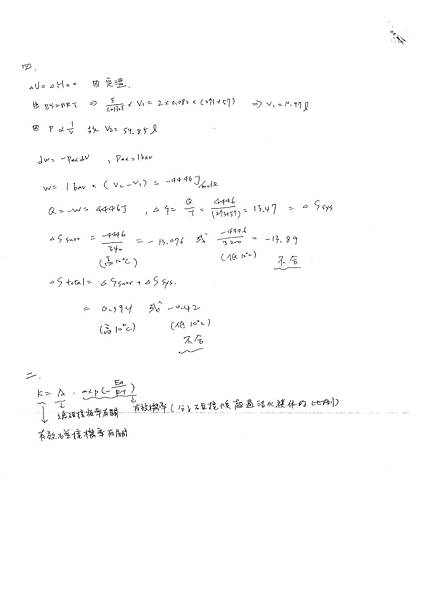 四.
ΔU = ΔH = 0 因定溫.
由 PV=nRT ⇒ 5/1.01325 × V₁ = 2×0.082×(273+57) ⇒ V₁=10.97 l
因 P ∝ 1/V 故 V₂ = 54.85 l
dw = -Pex dV , Pex=1bar
w = 1 bar × (V₂-V₁) = -4446 J
Q = -w = 4446J , ΔS = Q/T = 4446/(273+57) = 13.47 = ΔSsys
ΔSsurr = -4446/340 = -13.076 或 -4446/320 = -13.89
(高10°C) (低10°C) 不合
ΔStotal = ΔSsurr + ΔSsys.
= 0.394 或 -0.42
(高10°C) (低10°C)
不合
二.
K = A · exp(-Ea/RT)
總碰撞機率有關 有效機率(分子碰撞後高過活化錯體的比例)
有效碰撞機率有關